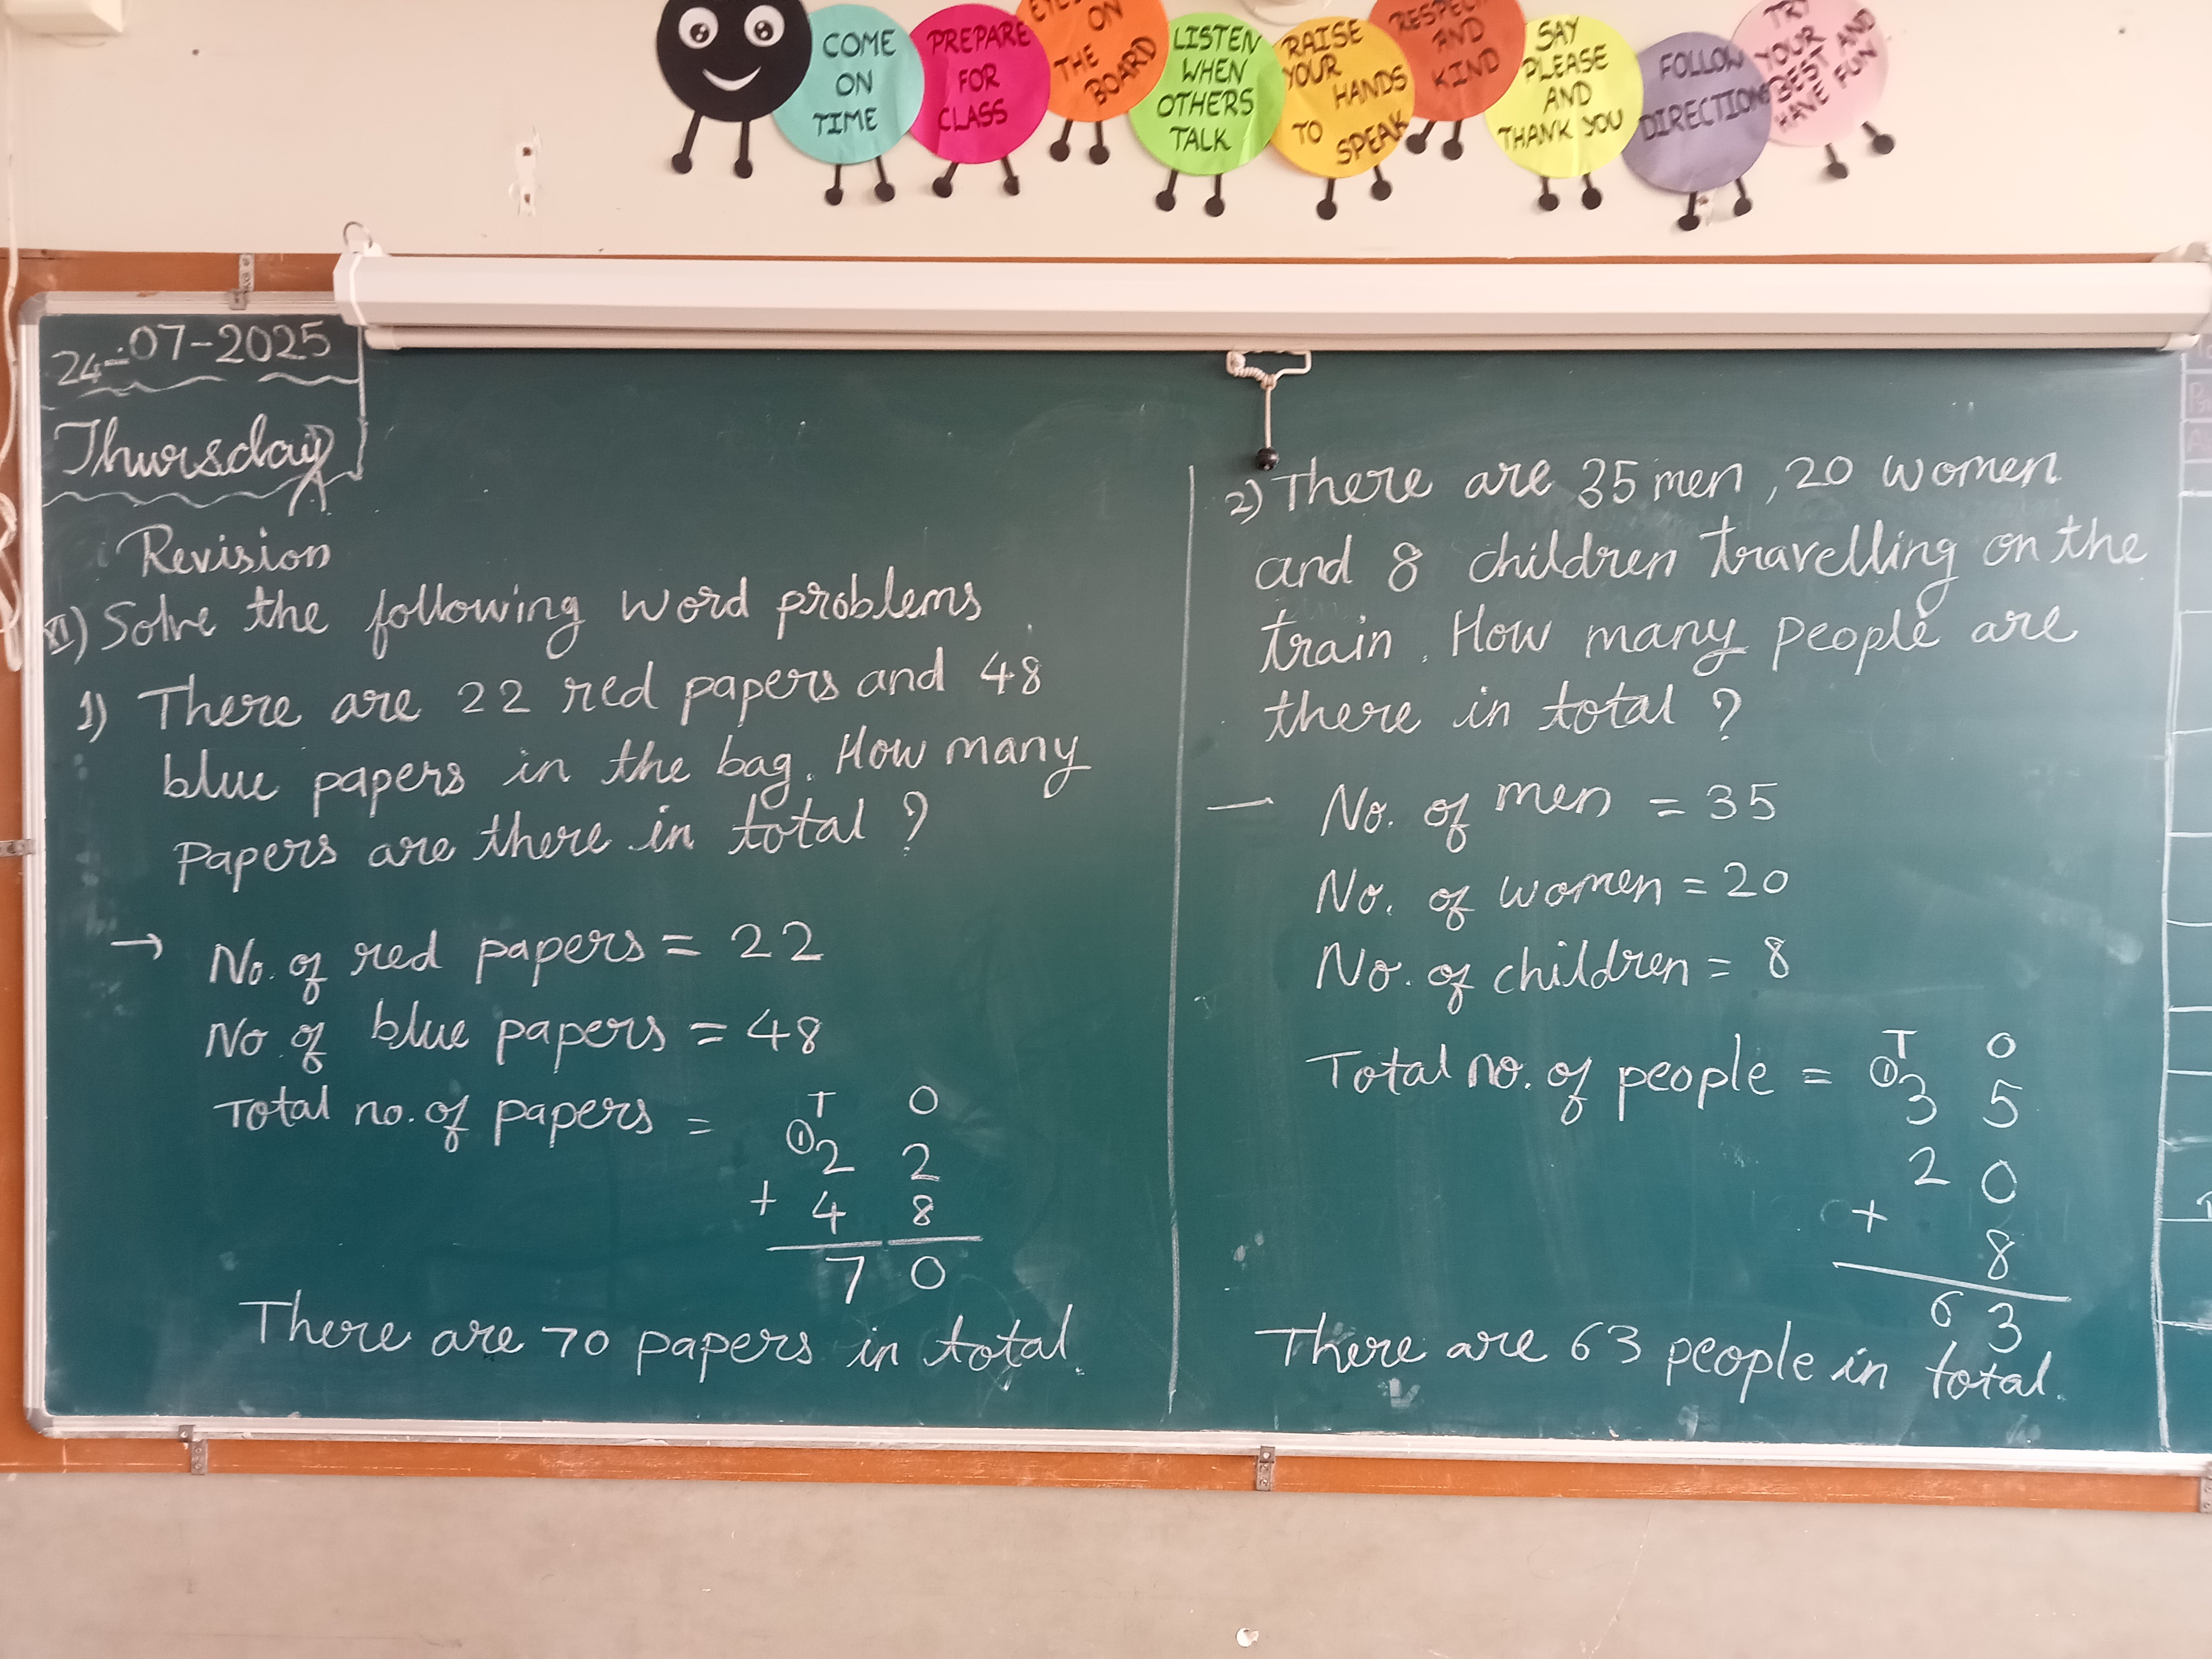 COME
ON
TIME
PREPARE
FOR
CLASS
ON
THE
BOARD
LISTEN
WHEN
OTHERS
TALK
RAISE
YOUR
HANDS
TO
SPEAK
AND
KIND
SAY
PLEASE
AND
THANK YOU
FOLLOW
DIRECTIONS
TRY
YOUR
BEST AND
HAVE FUN
24-07-2025
Thursday
Revision
VI) Solve the following word problems
1) There are 22 red papers and 48
blue papers in the bag. How many
Papers are there in total ?
→ No. of red papers = 22
No. of blue papers = 48
Total no. of papers =
T O
① 2 2
+ 4 8
7 0
There are 70 papers in total.
2) There are 35 men, 20 women
and 8 children travelling on the
train. How many people are
there in total ?
— No. of men = 35
No. of women = 20
No. of children = 8
Total no. of people =
T O
① 3 5
2 0
+ 8
6 3
There are 63 people in total.